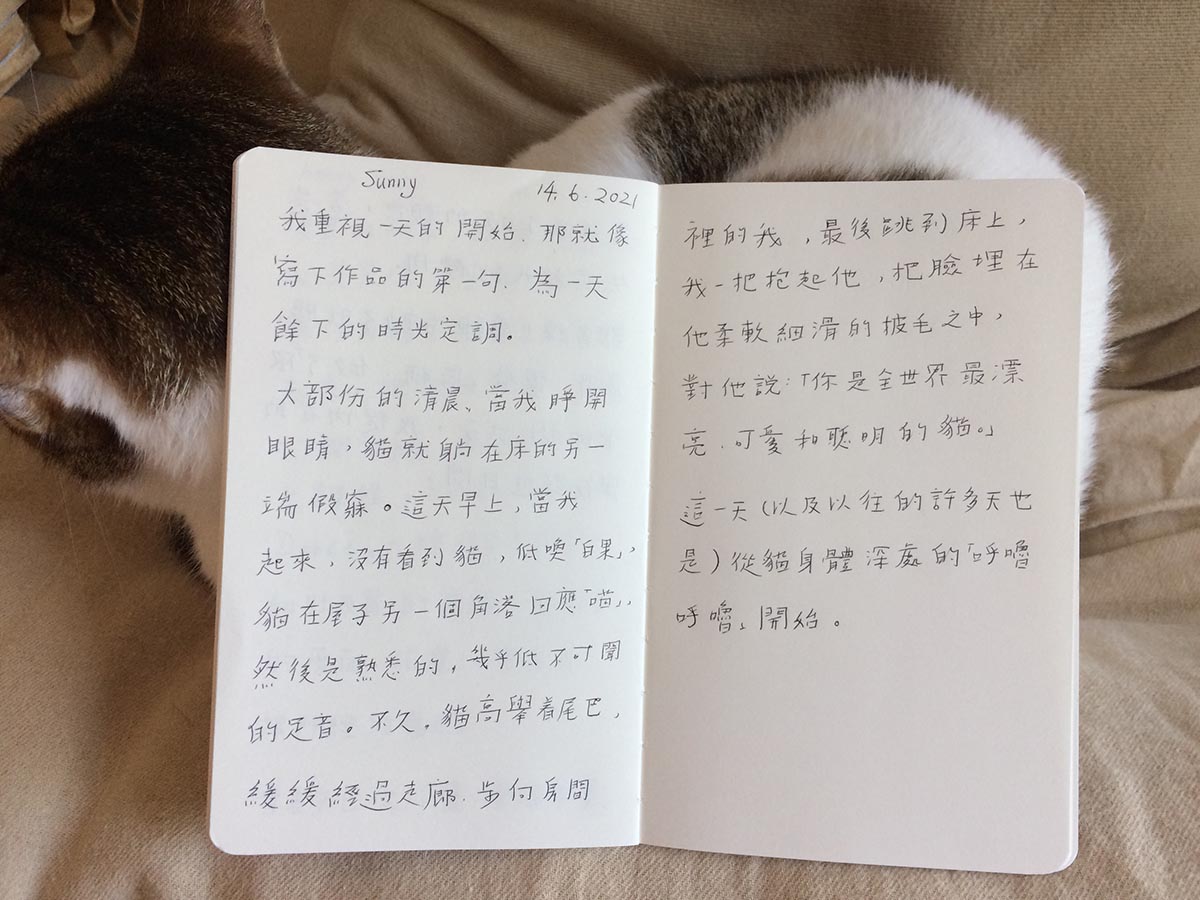 Sunny 14.6.2021
我重視一天的開始、那就像
寫下作品的第一句、為一天
餘下的時光定調。
大部份的清晨、當我睜開
眼睛，貓就躺在床的另一
端假寐。這天早上，當我
起來，沒有看到貓，低喚「白果」，
貓在屋子另一個角落回應「喵」，
然後是熟悉的，幾乎低不可聞
的足音。不久，貓高舉着尾巴，
緩緩經過走廊、步向房間
裡的我，最後跳到床上，
我一把抱起他，把臉埋在
他柔軟細滑的披毛之中，
對他說：「你是全世界最漂
亮、可愛和聰明的貓。」
這一天（以及以往的許多天也
是）從貓身體深處的「呼嚕
呼嚕」開始。